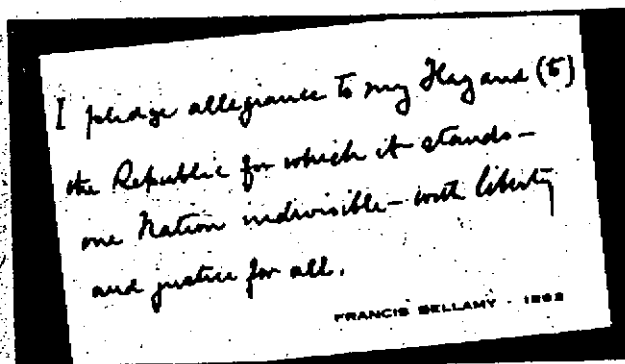 I pledge allegiance to my Flag and (to)
the Republic for which it stands—
one Nation indivisible—with liberty
and justice for all.
FRANCIS BELLAMY - 1892